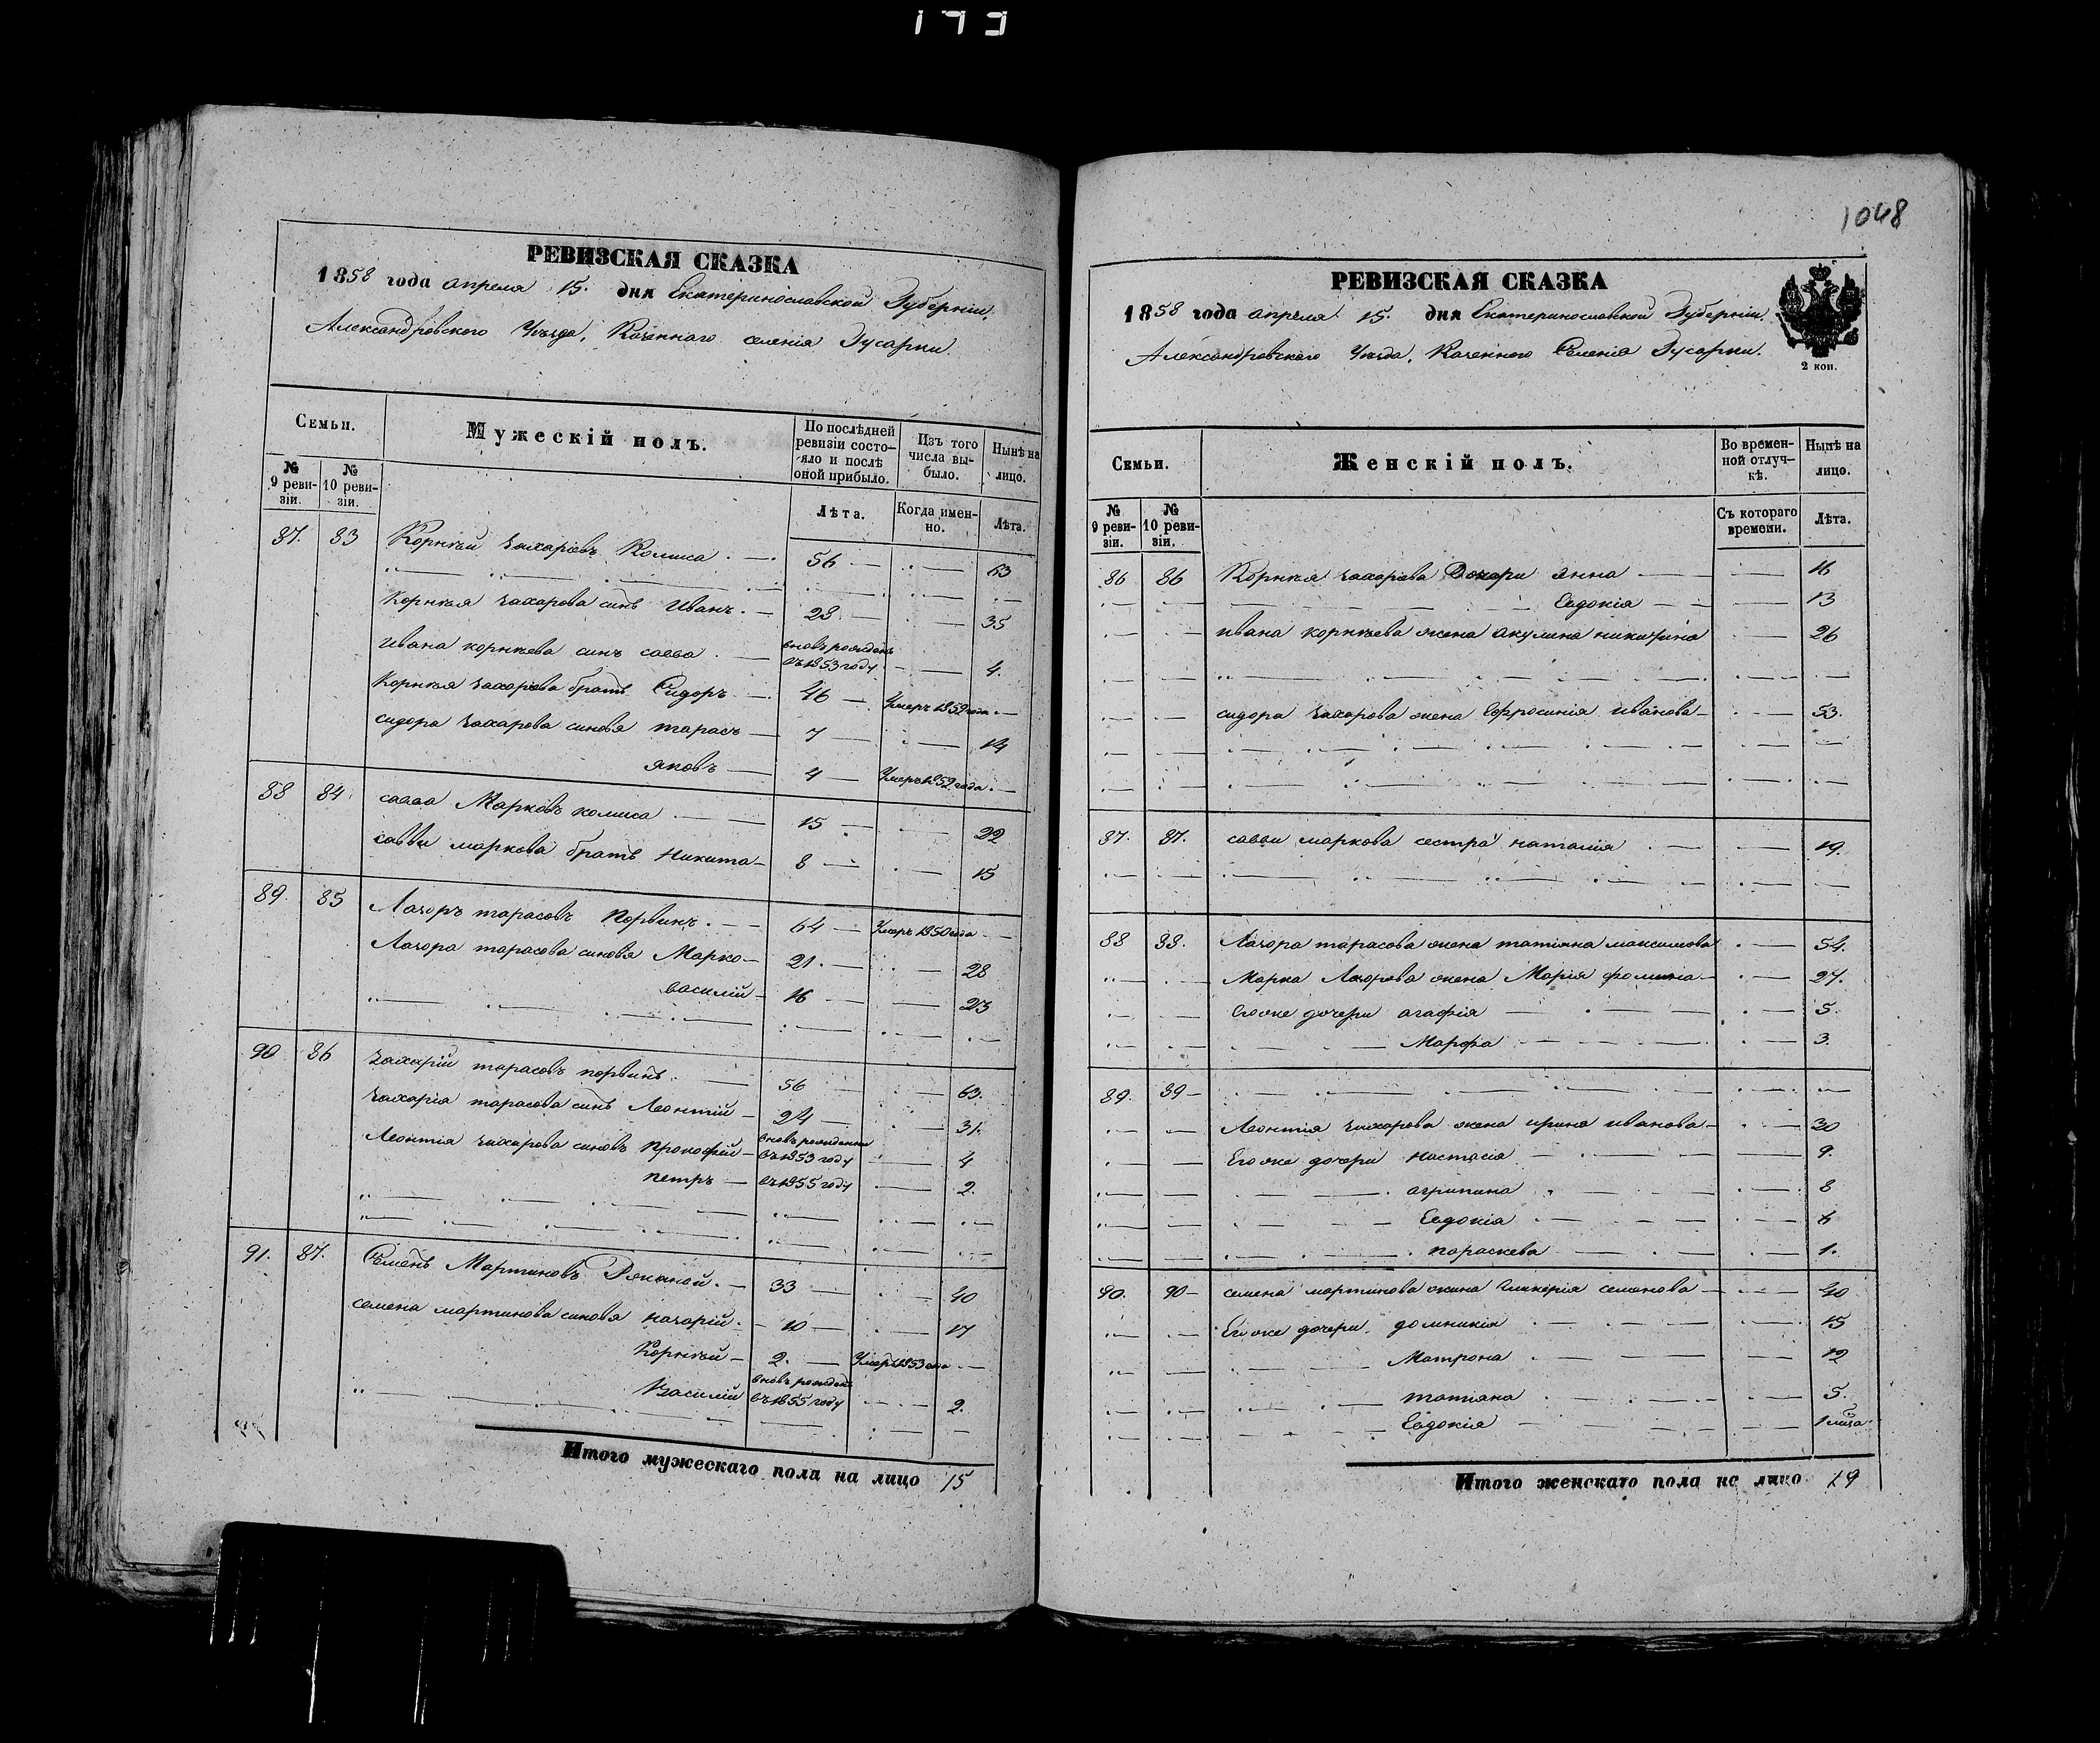 173
РЕВИЗСКАЯ СКАЗКА
1858 года апреля 15. дня Екатеринославской Губерніи,
Александровского Уѣзда, Казенного селенія Гусарки.
Семьи.
Мужескій полъ.
По послѣдней ревизіи состо-яло и послѣ оной прибыло.
Изъ того числа вы-было.
Нынѣ на лицо.
№ 9 реви-зіи.
№ 10 реви-зіи.
Лѣта.
Когда имен-но.
Лѣта.
87. 83 Корнѣй Захаріевъ Колиса 56 63
Корнѣя Захарова синъ Иванъ 28 35
Ивана корнѣева синъ савва вновь рожденъ въ 1853 году 4.
Корнѣя Захарова братъ Сидоръ 46 Умеръ 1852 года
сидора Захарова синовя тарасъ 7 14
яковъ 4 Умеръ 1852 года
88 84 савва Марковъ колиса 15 22
саввы маркова братъ Никита 8 15
89. 85 Лазоръ тарасовъ Порвинъ 64 Умеръ 1850 года
Лазора тарасова синовя Марко 21. 28
василій 16 23
90 86 Захарій тарасовъ порвинъ 56 63.
Захарія тарасова синъ Леонтій 24 31.
Леонтія Захарова синовъ Прокофій вновь рожденни въ 1853 году 4
петръ въ 1855 году 2.
91. 87. Семенъ Мартиновъ 33 40
семена мартинова синовя назарій 10 17
Корнѣй 2. Умеръ 1853
Василій вновь рожденъ въ 1855 году 2.
Итого мужескаго пола на лицо 15
1048
РЕВИЗСКАЯ СКАЗКА
1858 года апреля 15. дня Екатеринославской Губерніи.
Александровского Уѣзда, Казенного Селенія Гусарки.
2 коп.
Семьи.
Женскій полъ.
Во времен-ной отлуч-кѣ.
Нынѣ на лицо.
№ 9 реви-зіи.
№ 10 реви-зіи.
Съ котораго времени.
Лѣта.
86 86 Корнѣя Захарова Дочери Анна 16
Евдокія 13
ивана корнѣева жена акулина никитина 26
сидора Захарова жена Ефросинія иванова 53.
87. 87. саввы маркова сестра наталія 19.
88 88. Лазора тарасова жена татіяна максимова 54.
Марка Лазорова жена Марія фомина 27.
Егоже дочери агафія 5.
Марфа 3.
89. 89
Леонтія Захарова жена ирина иванова 30
Егоже дочери настасія 9.
агрипина 8
Евдокія 6
параскева 1.
90. 90 семена мартинова жина Гликерія семенова 40
Егоже дочери домникія 15
Матрона 12
татіана 5.
Евдокія
Итого женскаго пола на лицо 19